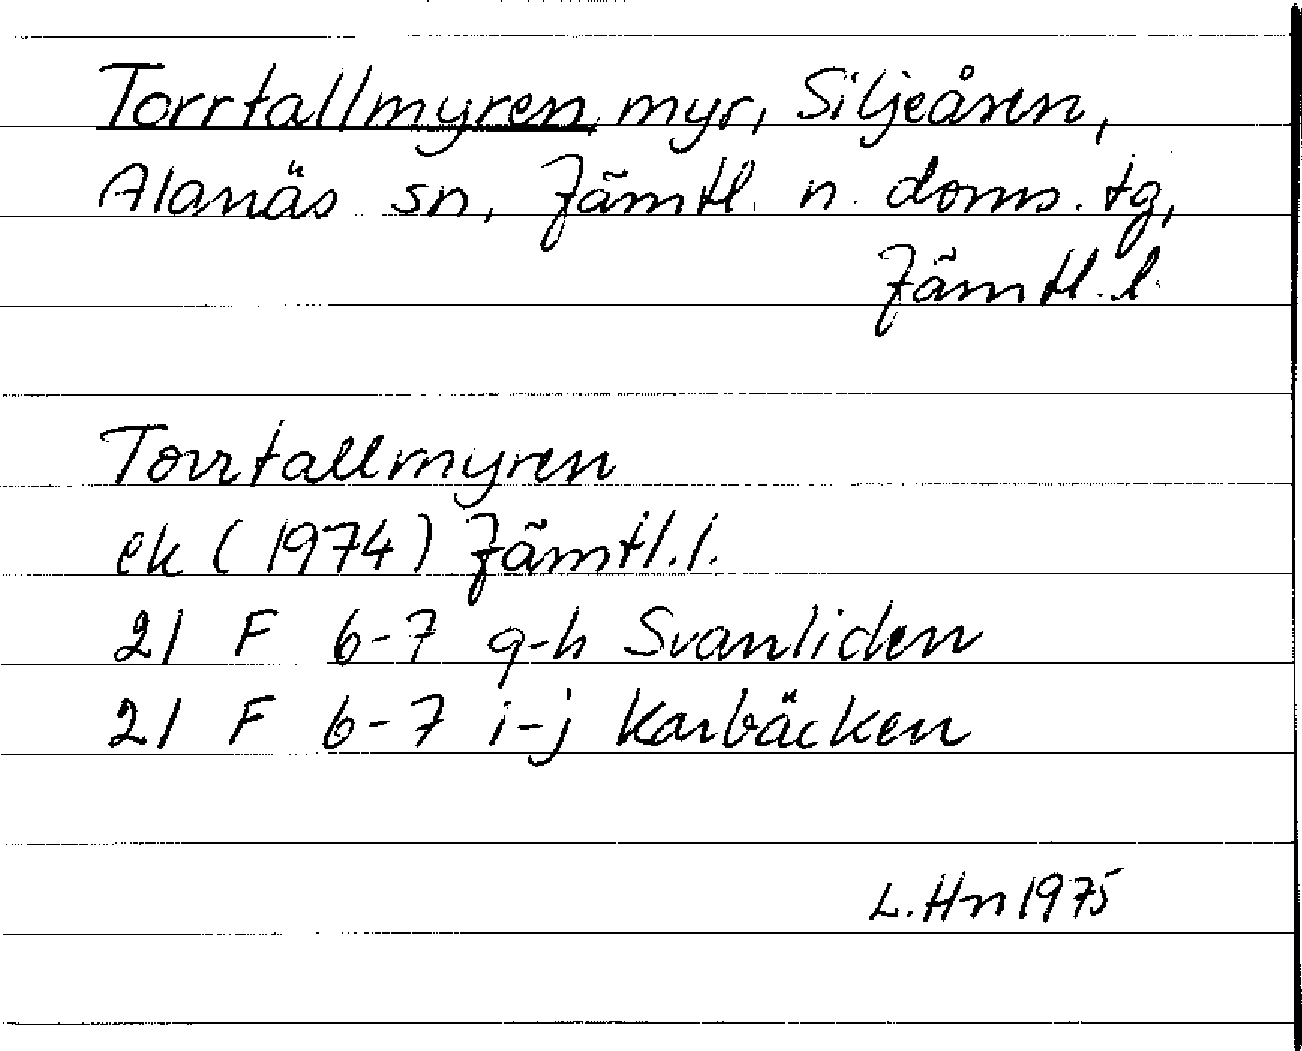 Torrtallmyren, myr, Siljeåsen,
Alanäs sn, Jämtl. n. doms. tg,
Jämtl. l.
Torrtallmyren
ek (1974) Jämtl. l.
21 F 6-7 g-h Svanliden
21 F 6-7 i-j Karbäcken
L. Hn 1975